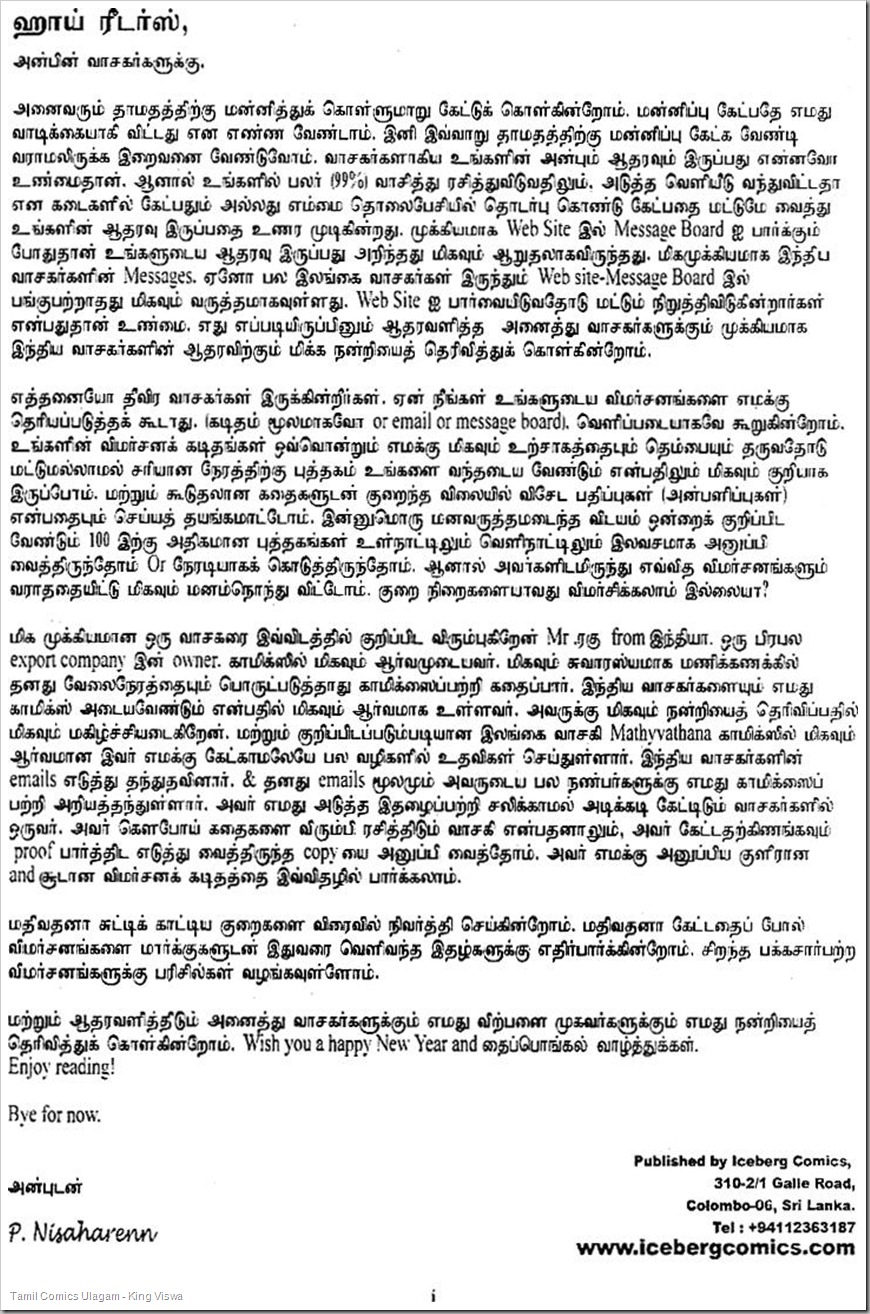 ஹாய் ரீடர்ஸ்,
அன்பின் வாசகர்களுக்கு.
அனைவரும் தாமதத்திற்கு மன்னித்துக் கொள்ளுமாறு கேட்டுக் கொள்கின்றோம். மன்னிப்பு கேட்பதே எமது
வாடிக்கையாகி விட்டது என எண்ண வேண்டாம். இனி இவ்வாறு தாமதத்திற்கு மன்னிப்பு கேட்க வேண்டி
வராமலிருக்க இறைவனை வேண்டுவோம். வாசகர்களாகிய உங்களின் அன்பும் ஆதரவும் இருப்பது என்னவோ
உண்மைதான். ஆனால் உங்களில் பலர் (99%) வாசித்து ரசித்துவிடுவதிலும். அடுத்த வெளியீடு வந்துவிட்டதா
என கடைகளில் கேட்பதும் அல்லது எம்மை தொலைபேசியில் தொடர்பு கொண்டு கேட்பதை மட்டுமே வைத்து
உங்களின் ஆதரவு இருப்பதை உணர முடிகின்றது. முக்கியமாக Web Site இல் Message Board ஐ பார்க்கும்
போதுதான் உங்களுடைய ஆதரவு இருப்பது அறிந்தது மிகவும் ஆறுதலாகவிருந்தது. மிகமுக்கியமாக இந்திய
வாசகர்களின் Messages. ஏனோ பல இலங்கை வாசகர்கள் இருந்தும் Web site-Message Board இல்
பங்குபற்றாதது மிகவும் வருத்தமாகவுள்ளது. Web Site ஐ பார்வையிடுவதோடு மட்டும் நிறுத்திவிடுகின்றார்கள்
என்பதுதான் உண்மை. எது எப்படியிருப்பினும் ஆதரவளித்த அனைத்து வாசகர்களுக்கும் முக்கியமாக
இந்திய வாசகர்களின் ஆதரவிற்கும் மிக்க நன்றியைத் தெரிவித்துக் கொள்கின்றோம்.
எத்தனையோ தீவிர வாசகர்கள் இருக்கின்றிர்கள். ஏன் நீங்கள் உங்களுடைய விமர்சனங்களை எமக்கு
தெரியப்படுத்தக் கூடாது. (கடிதம் மூலமாகவோ or email or message board). வெளிப்படையாகவே கூறுகின்றோம்.
உங்களின் விமர்சனக் கடிதங்கள் ஒவ்வொன்றும் எமக்கு மிகவும் உற்சாகத்தையும் தெம்பையும் தருவதோடு
மட்டுமல்லாமல் சரியான நேரத்திற்கு புத்தகம் உங்களை வந்தடைய வேண்டும் என்பதிலும் மிகவும் குறியாக
இருப்போம். மற்றும் கூடுதலான கதைகளுடன் குறைந்த விலையில் விசேட பதிப்புகள் (அன்பளிப்புகள்)
என்பதையும் செய்யத் தயங்கமாட்டோம். இன்னுமொரு மனவருத்தமடைந்த விடயம் ஒன்றைக் குறிப்பிட
வேண்டும் 100 இற்கு அதிகமான புத்தகங்கள் உள்நாட்டிலும் வெளிநாட்டிலும் இலவசமாக அனுப்பி
வைத்திருந்தோம் Or நேரடியாகக் கொடுத்திருந்தோம். ஆனால் அவர்களிடமிருந்து எவ்வித விமர்சனங்களும்
வராததையிட்டு மிகவும் மனம்நொந்து விட்டோம். குறை நிறைகளையாவது விமர்சிக்கலாம் இல்லையா?
மிக முக்கியமான ஒரு வாசகரை இவ்விடத்தில் குறிப்பிட விரும்புகிறேன் Mr .ரகு from இந்தியா. ஒரு பிரபல
export company இன் owner. காமிக்ஸில் மிகவும் ஆர்வமுடையவர். மிகவும் சுவாரஸ்யமாக மணிக்கணக்கில்
தனது வேலைநேரத்தையும் பொருட்படுத்தாது காமிக்ஸைப்பற்றி கதைப்பார். இந்திய வாசகர்களையும் எமது
காமிக்ஸ் அடையவேண்டும் என்பதில் மிகவும் ஆர்வமாக உள்ளவர். அவருக்கு மிகவும் நன்றியைத் தெரிவிப்பதில்
மிகவும் மகிழ்ச்சியடைகிறேன். மற்றும் குறிப்பிடப்படும்படியான இலங்கை வாசகி Mathyvathana காமிக்ஸில் மிகவும்
ஆர்வமான இவர் எமக்கு கேட்காமலேயே பல வழிகளில் உதவிகள் செய்துள்ளார். இந்திய வாசகர்களின்
emails எடுத்து தந்துதவினார். & தனது emails மூலமும் அவருடைய பல நண்பர்களுக்கு எமது காமிக்ஸைப்
பற்றி அறியத்தந்துள்ளார். அவர் எமது அடுத்த இதழைப்பற்றி சலிக்காமல் அடிக்கடி கேட்டிடும் வாசகர்களில்
ஒருவர். அவர் கௌபோய் கதைகளை விரும்பி ரசித்திடும் வாசகி என்பதனாலும், அவர் கேட்டதற்கிணங்கவும்
proof பார்த்திட எடுத்து வைத்திருந்த copy யை அனுப்பி வைத்தோம். அவர் எமக்கு அனுப்பிய குளிரான
and சூடான விமர்சனக் கடிதத்தை இவ்விதழில் பார்க்கலாம்.
மதிவதனா சுட்டிக் காட்டிய குறைகளை விரைவில் நிவர்த்தி செய்கின்றோம். மதிவதனா கேட்டதைப் போல்
விமர்சனங்களை மார்க்குகளுடன் இதுவரை வெளிவந்த இதழ்களுக்கு எதிர்பார்க்கின்றோம். சிறந்த பக்கசார்பற்ற
விமர்சனங்களுக்கு பரிசில்கள் வழங்கவுள்ளோம்.
மற்றும் ஆதரவளித்திடும் அனைத்து வாசகர்களுக்கும் எமது விற்பனை முகவர்களுக்கும் எமது நன்றியைத்
தெரிவித்துக் கொள்கின்றோம். Wish you a happy New Year and தைப்பொங்கல் வாழ்த்துக்கள்.
Enjoy reading!
Bye for now.
Published by Iceberg Comics,
310-2/1 Galle Road,
Colombo-06, Sri Lanka.
Tel : +94112363187
www.icebergcomics.com
அன்புடன்
P. Nisaharenn
i
Tamil Comics Ulagam - King Viswa